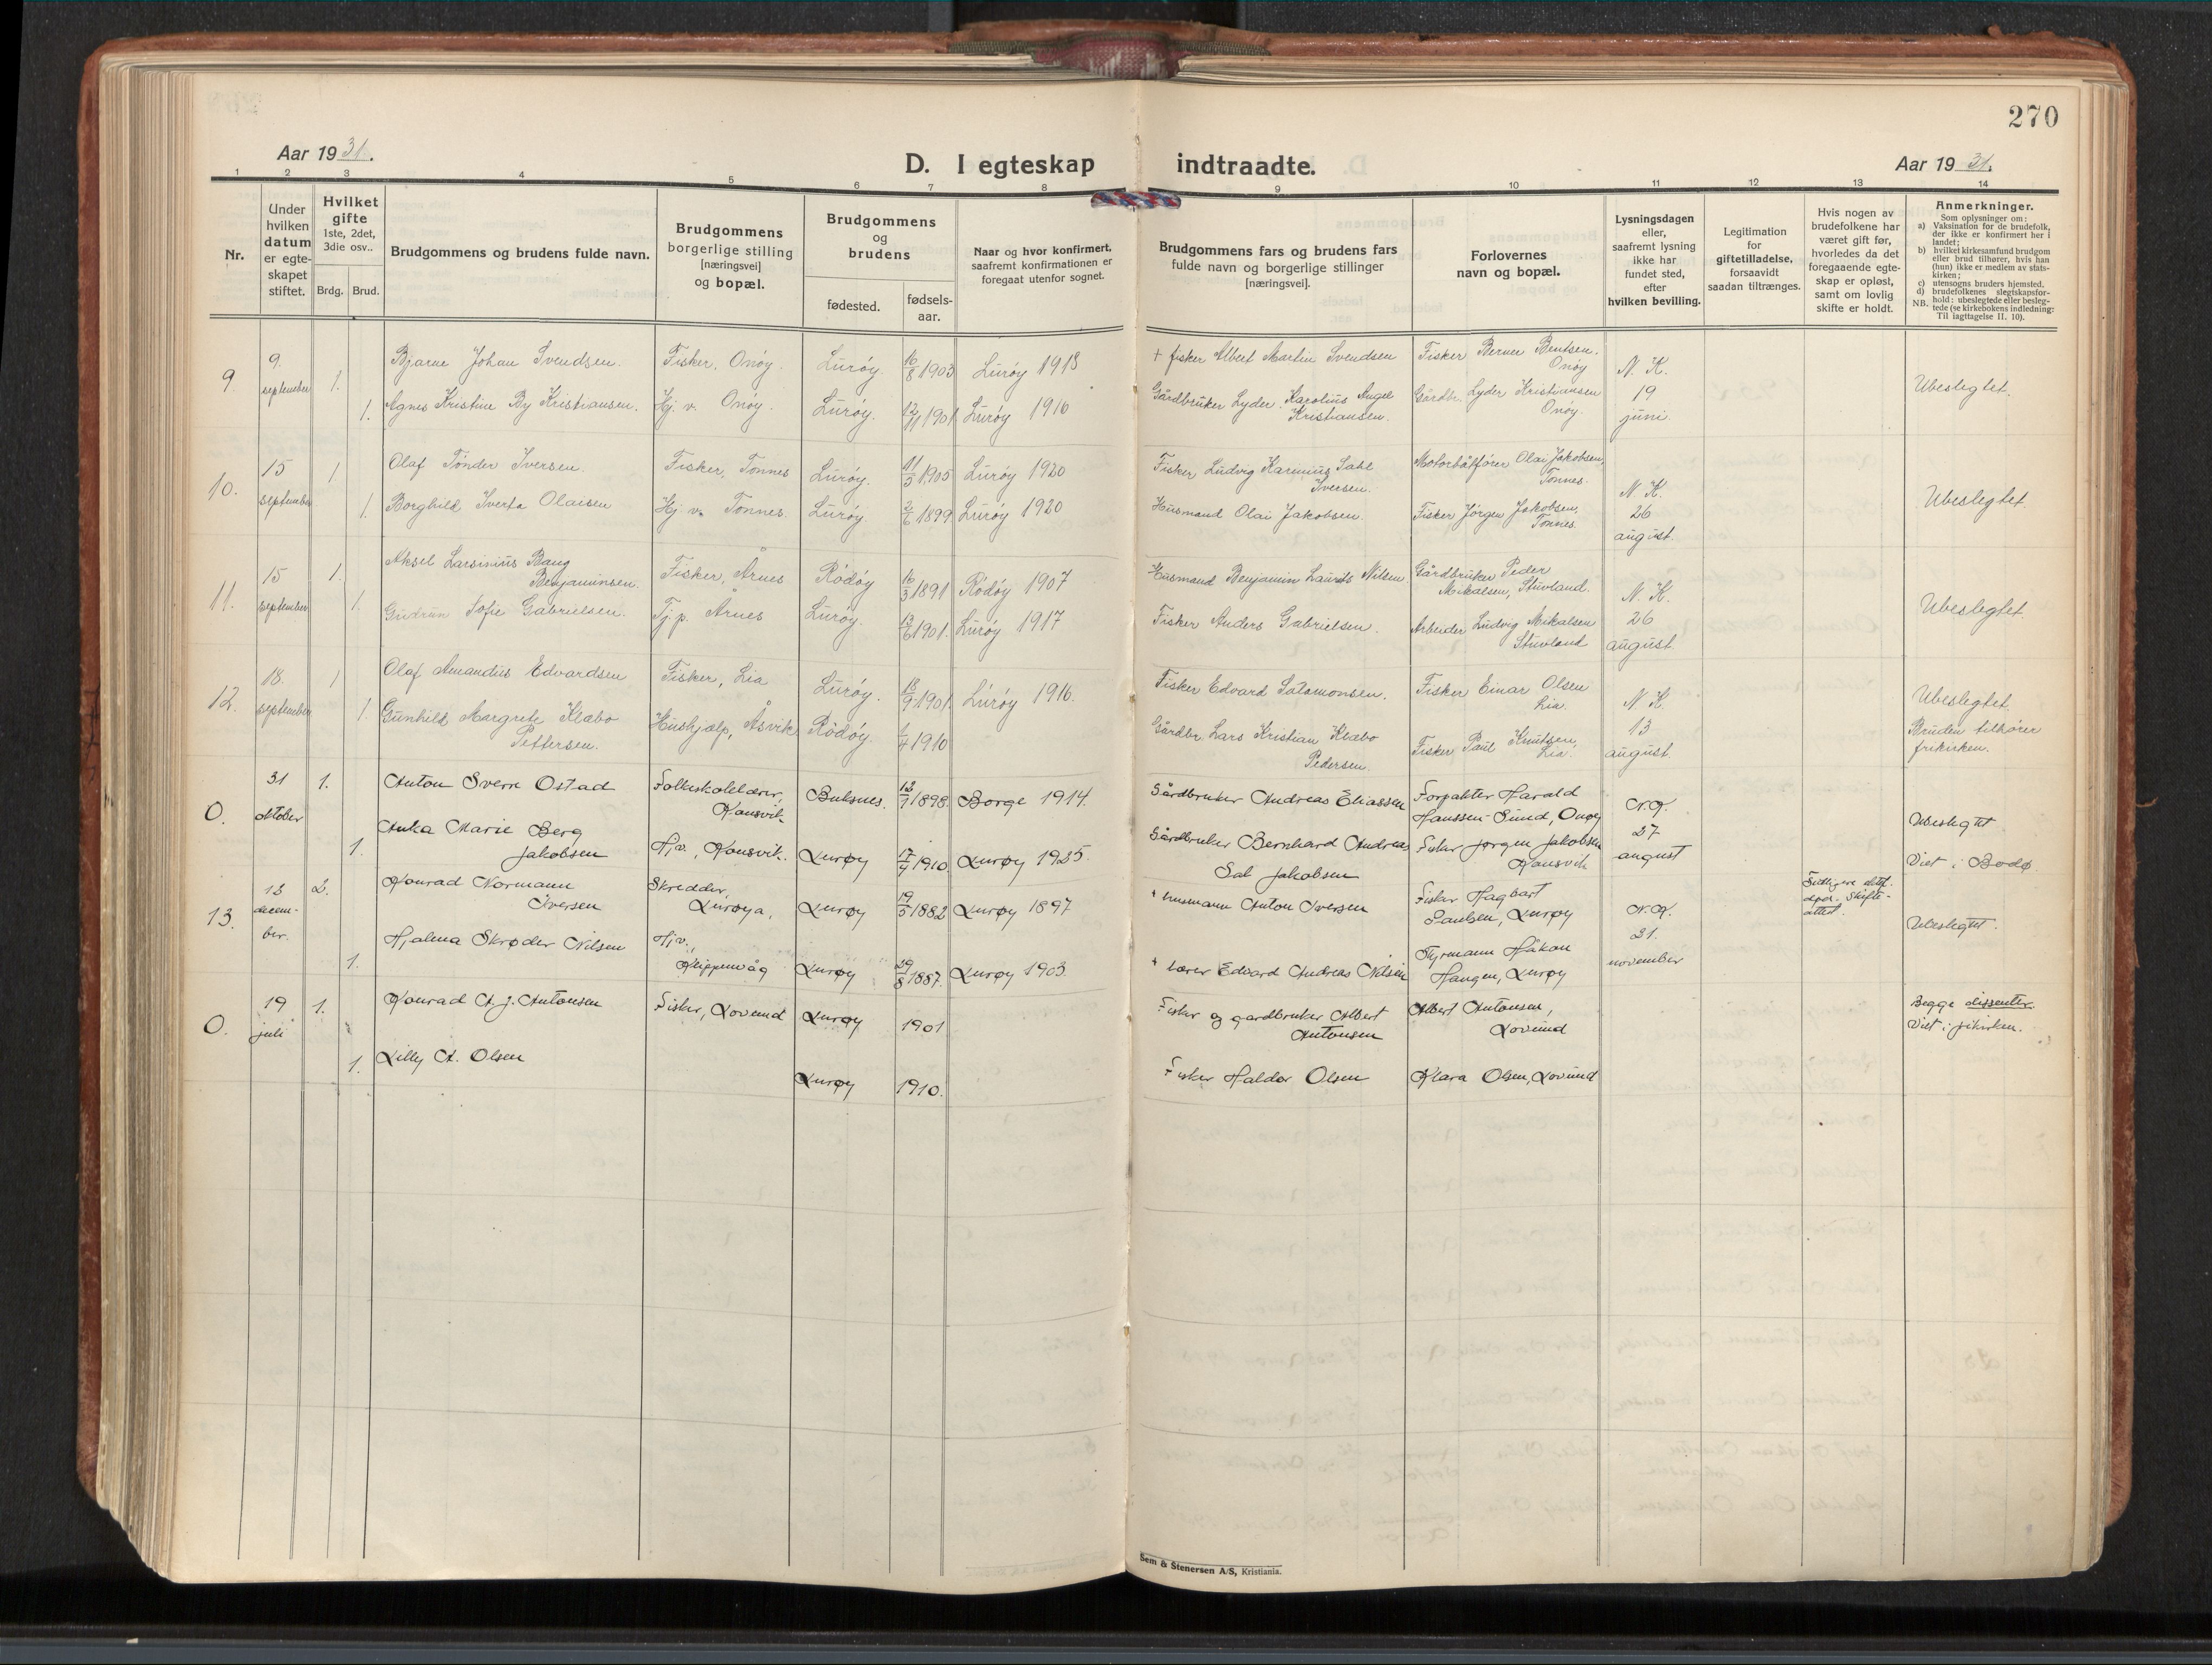 270
Aar 1931.
D. I egteskap indtraadte.
Aar 1931.
1 2 3 4 5 6 7 8 9 10 11 12 13 14
Nr.
Under hvilken datum er egte-skapet stiftet.
Hvilket gifte 1ste, 2det, 3die osv..
Brdg. Brud.
Brudgommens og brudens fulde navn.
Brudgommens borgerlige stilling [næringsvei] og bopæl.
Brudgommens og brudens
fødested.
fødsels-aar.
Naar og hvor konfirmert, saafremt konfirmationen er foregaat utenfor sognet.
Brudgommens fars og brudens fars fulde navn og borgerlige stillinger [næringsvei].
Forlovernes navn og bopæl.
Lysningsdagen eller, saafremt lysning ikke har fundet sted, efter hvilken bevilling.
Legitimation for giftetilladelse, forsaavidt saadan tiltrænges.
Hvis nogen av brudefolkene har været gift før, hvorledes da det foregaaende egte-skap er opløst, samt om lovlig skifte er holdt.
Anmerkninger.
Som oplysninger om:
a) Vaksination for de brudefolk, der ikke er konfirmert her i landet;
b) hvilket kirkesamfund brudgom eller brud tilhører, hvis han (hun) ikke er medlem av stats-kirken;
c) utensogns bruders hjemsted.
d) brudefolkenes slegtskapsfor-hold: ubeslegtede eller besleg-tede (se kirkebokens indledning: Til iagttagelse II. 10).
NB.
9. 9. september 1. Bjarne Johan Svendsen. Fisker, Onøy. Lurøy. 16/8 1903 Lurøy 1918 + fisker Albert Martin Svendsen Fisker Berner Bentsen. Onøy N. K. 19 juni Ubeslegtet.
1. Agnes Kristine By Kristiansen. Hj. v. Onøy. Lurøy. 12/11 1901 Lurøy 1916 Gårdbruker Lyder Karolius Angel Kristiansen. Gårdbr. Lyder Kristiansen Onøy.
10. 15 september 1. Olaf Tønder Iversen. Fisker, Tonnes Lurøy. 11/5 1905 Lurøy 1920 Fisker Ludvig Karenius Sahl Iversen. Motorbåtfører Olai Jakobsen, Tonnes. N K. 26 august. Ubeslegtet.
1. Borghild Iverta Olaisen Hj. v. Tonnes. Lurøy 2/6 1899 Lurøy 1920 Husmand Olai Jakobsen. Fisker Jørgen Jakobsen, Tonnes.
11. 15 september 1. Aksel Larsinius Bang Benjaminsen. Fisker, Årnes Rödöy 16/3 1891 Rödöy 1907 Husmand Benjamin Laurits Nilsen Gårdbruker Peder Mikalsen, Stuvland. N. K. 26 august. Ubeslegtet
1. Gudrun Sofie Gabrielsen. Tj. p. Årnes Lurøy. 13/6 1901. Lurøy 1917 Fisker Anders Gabrielsen. Arbeider Ludvig Mikalsen Stuvland
12. 18. september 1 Olaf Amandus Edvardsen Fisker, Lia Lurøy. 18/9 1901 Lurøy 1916. Fisker Edvard Salamonsen. Fisker Einar Olsen Lia. N K. 13 august. Ubeslegtet.
1. Gunhild Margrete Klæbo Pettersen. Hushjælp, Åsvik Rödöy. 1/4 1910 Gårdbr. Lars Kristian Klæbo Pedersen. Fisker Paul Knutsen, Lia. Bruden tilhører frikirken.
0. 31 oktober 1. Anton Sverre Ostad Folkeskolelærer, Konsvik Buksnes. 12/7 1898. Borge 1914. Gårdbruker Andreas Eliassen Forpakter Harald Hanssen-Sund, Onøy N.K. 27 august Ubeslegtet
1. Anka Marie Berg Jakobsen Hjv., Konsvik. Lurøy 17/7 1910. Lurøy 1925. Gårdbruker Bernhard Andreas Sal Jakobsen Fisker Jørgen Jakobsen Konsvik Viet i Bodø
13. 13 decem-ber. 2. Konrad Normann Iversen Skredder, Lurøya, Lurøy 19/5 1882 Lurøy 1897 + husmann Anton Iversen Fisker Hagbart Paulsen, Lurøy N.K. 21. november Skifte-attest. Ubeslegtet.
1. Hjalma Skrøder Nilsen Hjv., Klippenvåg Lurøy 29/8 1887. Lurøy 1903. + lærer Edvard Andreas Nilsen Styrmann Håkon Haugen, Lurøy
0. 19 juli 1. Konrad A. J. Antonsen Fisker, Lovund Lurøy 1901 Fisker og gardbruker Albert Antonsen Albert Antonsen, Lovund Begge dissenter. Viet i frikirken.
1. Lilly A. Olsen Lurøy 1910. Fisker Haldor Olsen Klara Olsen, Lovund
Sem & Stenersen A/S, Kristiania.